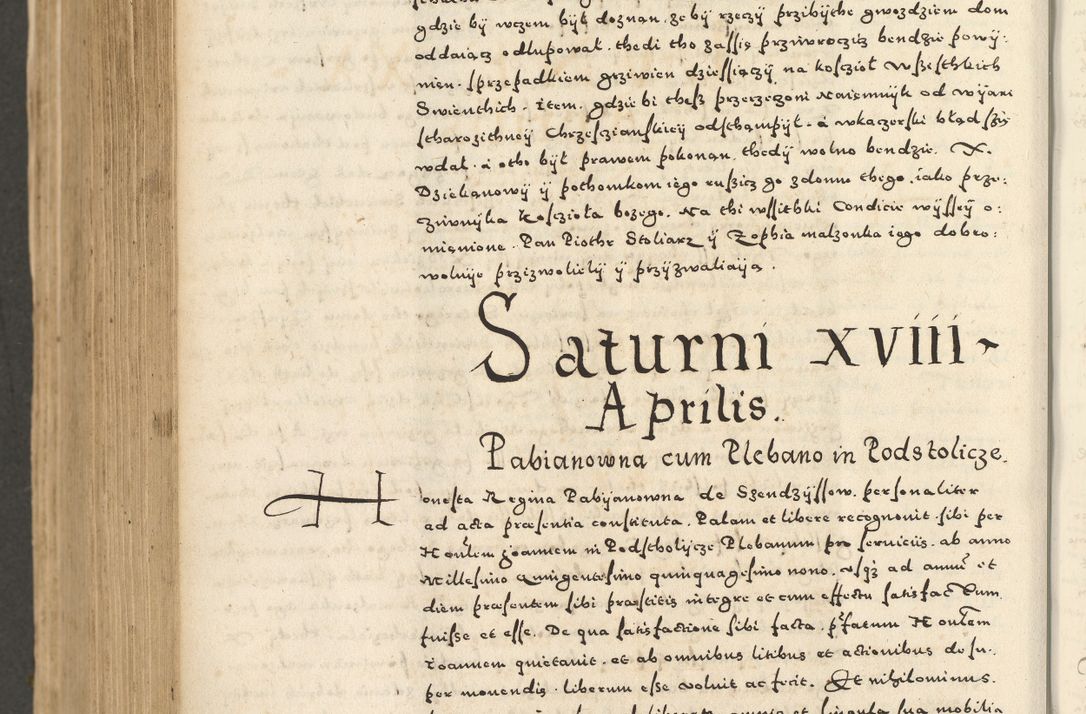 gdzie bÿ wczem bÿł doznan, że bÿ rzeczÿ przibÿthe gwozdziem dom
oddaiącz odlupował. thedi tho zassię prziwroczicz bendzie powÿ:
nien. sprzepadkiem grziwien dziessiączÿ na kosczioł wszesthkich
Swienthich. item. gdzie bi thesz przerzegoni Naiemnÿk od wÿari
starozithneÿ Chrzesczianskieÿ odsthąmpÿł. á wkaczerski błąd sziÿ
wdał. á otho bÿł prawem pokonan, thedÿ wolno bendzie. X.
Dziekanowÿ ÿ pothomkom iego ruszicz go zdomu thego, iako prze:
cziwnÿka kosczioła bożego. Na thi wssithki Condicie wÿsseÿ o:
mienione. Pan Piothr Stoliarz ÿ Zophia malzonka iego dobro:
wolnÿe przizwolielÿ ÿ przÿzwaliaiją.
Saturni xviii
Aprilis.
Pabianowna cum Plebano in Podstolicze.
Honesta Regina Pabÿanowna de Szendzÿssow. personaliter
ad acta præsentia constituta. Palam et libere recognouit. sibi per
Honlem Joannem in Podstholÿcze Plebanum pro seruiciis. ab anno
Millesimo Quingentesimo quinquagesimo nono. vsqz ad annū et
diem præsentem sibi præstitis integre et cum effectu satisfactum
fuisse et esse. De qua satisfactione sibi facta. pfatum Honlem
Joannem quietauit. et ab omnibus litibus et actionibus desu.
per mouendis. liberum esse voluit ac fecit. Et nihilominus.
omnia et singula sua mobilia